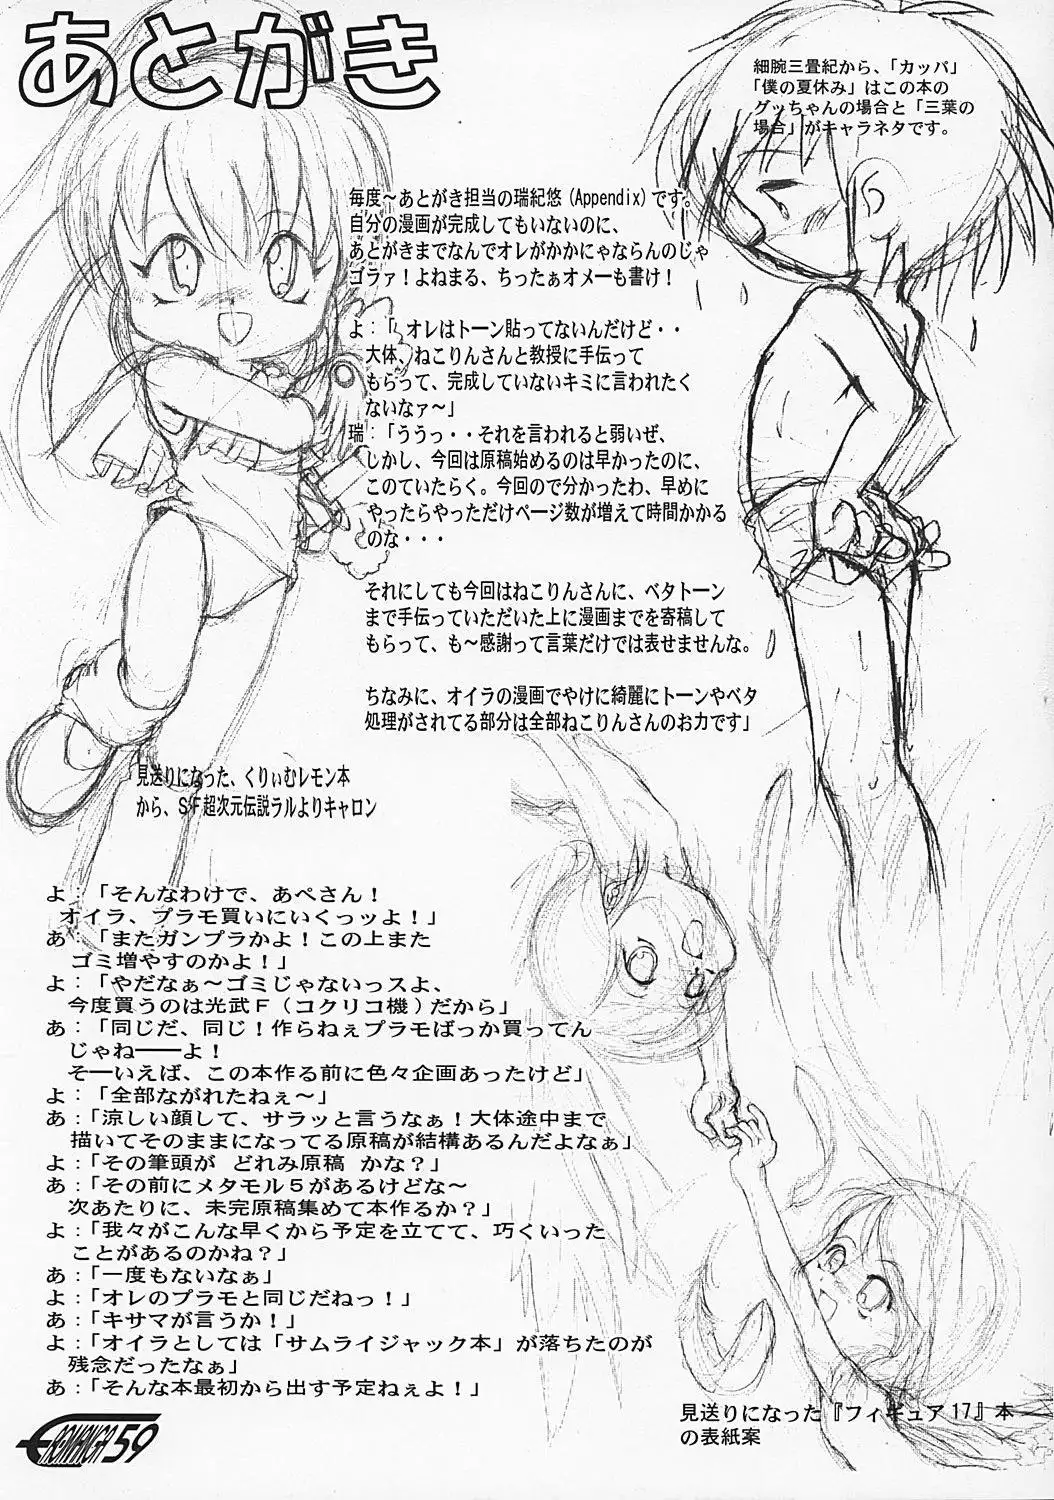 あとがき
細腕三畳紀から、「カッパ」
「僕の夏休み」はこの本の
グッちゃんの場合と「三葉の
場合」がキャラネタです。
毎度～あとがき担当の瑞紀悠(Appendix)です。
自分の漫画が完成してもいないのに、
あとがきまでなんでオレがかかにゃならんのじゃ
ゴラァ！よねまる、ちったぁオメーも書け！
よ：「オレはトーン貼ってないんだけど・・
大体、ねこりんさんと教授に手伝って
もらって、完成していないキミに言われたく
ないなァ～」
瑞：「ううっ・・それを言われると弱いぜ、
しかし、今回は原稿始めるのは早かったのに、
このていたらく。今回ので分かったわ、早めに
やったらやっただけページ数が増えて時間かかる
のな・・・
それにしても今回はねこりんさんに、ベタトーン
まで手伝っていただいた上に漫画までを寄稿して
もらって、も～感謝って言葉だけでは表せませんな。
ちなみに、オイラの漫画でやけに綺麗にトーンやベタ
処理がされてる部分は全部ねこりんさんのお力です」
見送りになった、くりぃむレモン本
から、ＳＦ超次元伝説ラルよりキャロン
よ：「そんなわけで、あぺさん！
オイラ、プラモ買いにいくっッよ！」
あ：「またガンプラかよ！この上また
ゴミ増やすのかよ！」
よ：「やだなぁ～ゴミじゃないっスよ、
今度買うのは光武Ｆ（コクリコ機）だから」
あ：「同じだ、同じ！作らねぇプラモばっか買ってん
じゃね――よ！
そ―いえば、この本作る前に色々企画あったけど」
よ：「全部ながれたねぇ～」
あ：「涼しい顔して、サラッと言うなぁ！大体途中まで
描いてそのままになってる原稿が結構あるんだよなぁ」
よ：「その筆頭が どれみ原稿 かな？」
あ：「その前にメタモル５があるけどな～
次あたりに、未完原稿集めて本作るか？」
よ：「我々がこんな早くから予定を立てて、巧くいった
ことがあるのかね？」
あ：「一度もないなぁ」
よ：「オレのプラモと同じだねっ！」
あ：「キサマが言うか！」
よ：「オイラとしては「サムライジャック本」が落ちたのが
残念だったなぁ」
あ：「そんな本最初から出す予定ねぇよ！」
見送りになった『フィギュア17』本
の表紙案
59